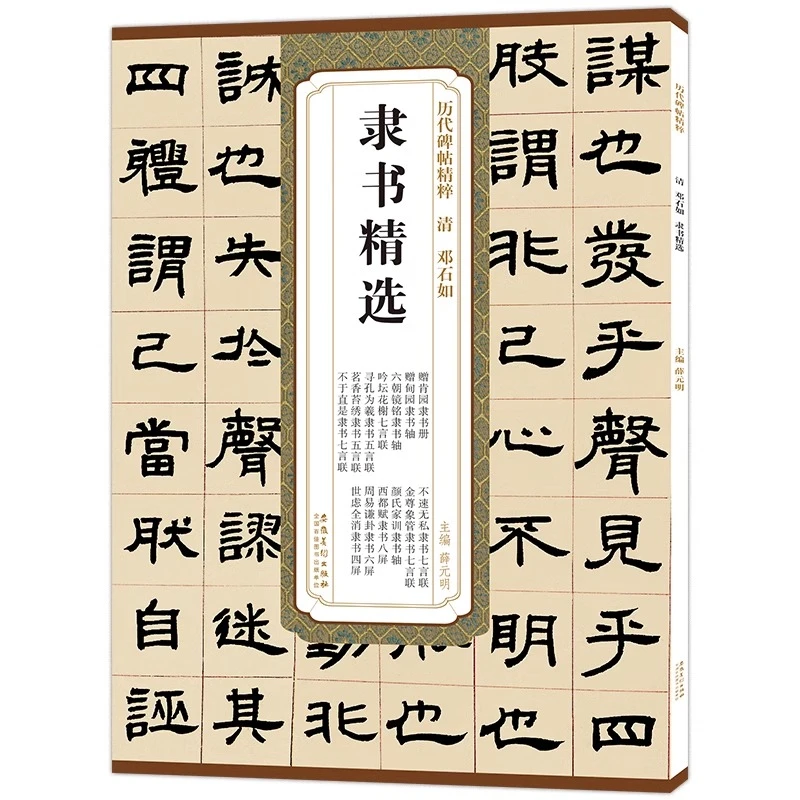 謀也發乎聲見乎四
肢謂非己心不明也
也
動非
誠也失於聲謬迷其
四體謂己當肰自誣
历代碑帖精粹 清 邓石如
隶书精选
赠肯园隶书册
赠甸园隶书轴
六朝镜铭隶书轴
吟坛花榭七言联
寻孔为羲隶书五言联
茗香苔绣隶书五言联
不于直是隶书七言联
不速无私隶书七言联
金尊象管隶书七言联
颜氏家训隶书轴
西都赋隶书八屏
周易谦卦隶书六屏
世虑全消隶书四屏
主编 薛元明
安徽美术出版社
全国百佳图书出版单位
历代碑帖精粹
清 邓石如 隶书精选
主编 薛元明
安徽美术出版社